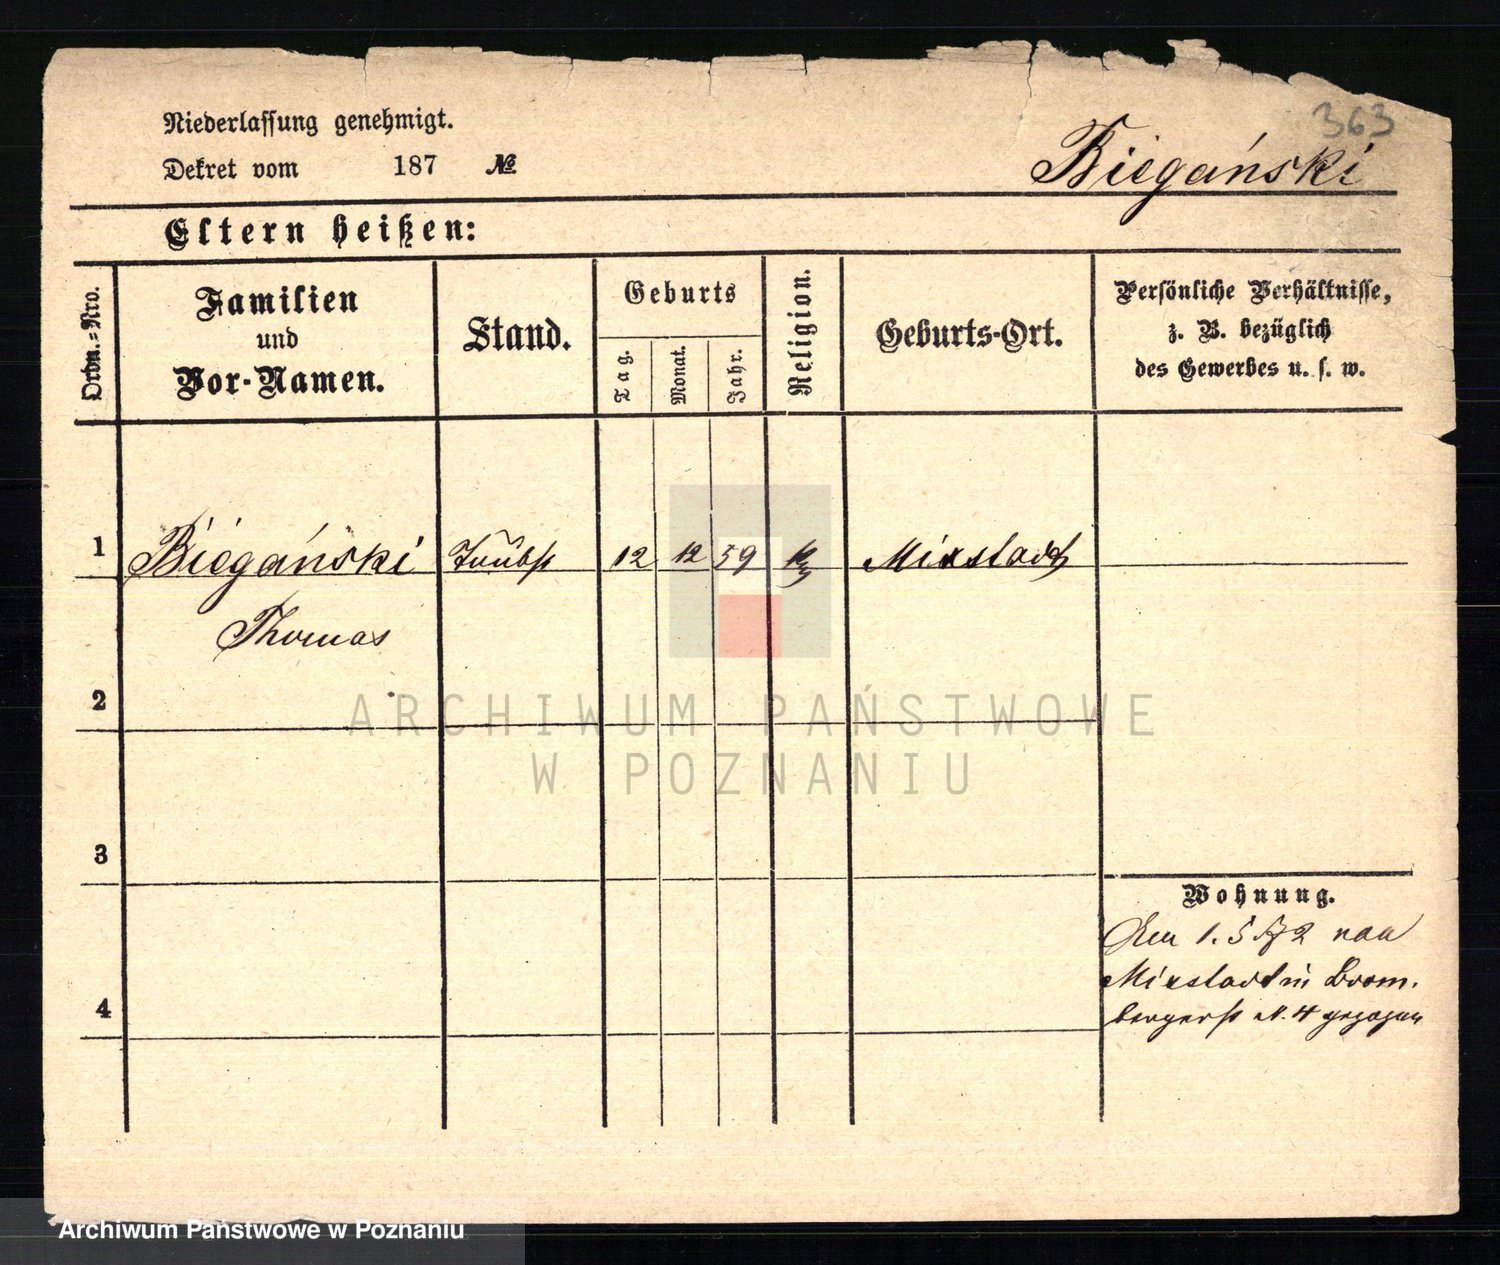 363
Niederlassung genehmigt.
Dekret vom 187 №
Biegański
Eltern heißen:
Ordn.-Nro.
Familien und Vor-Namen.
Stand.
Geburts
Tag.
Monat.
Jahr.
Religion.
Geburts-Ort.
Persönliche Verhältnisse,
z. B. bezüglich
des Gewerbes u. s. w.
1 Biegański 12 12 59 Mixstadt
Thomas
2
3
4
Wohnung.
1. 5 72
Mixstadt in Brom-
bergerst N. 4 gezogen
ARCHIWUM PAŃSTWOWE
W POZNANIU
Archiwum Państwowe w Poznaniu